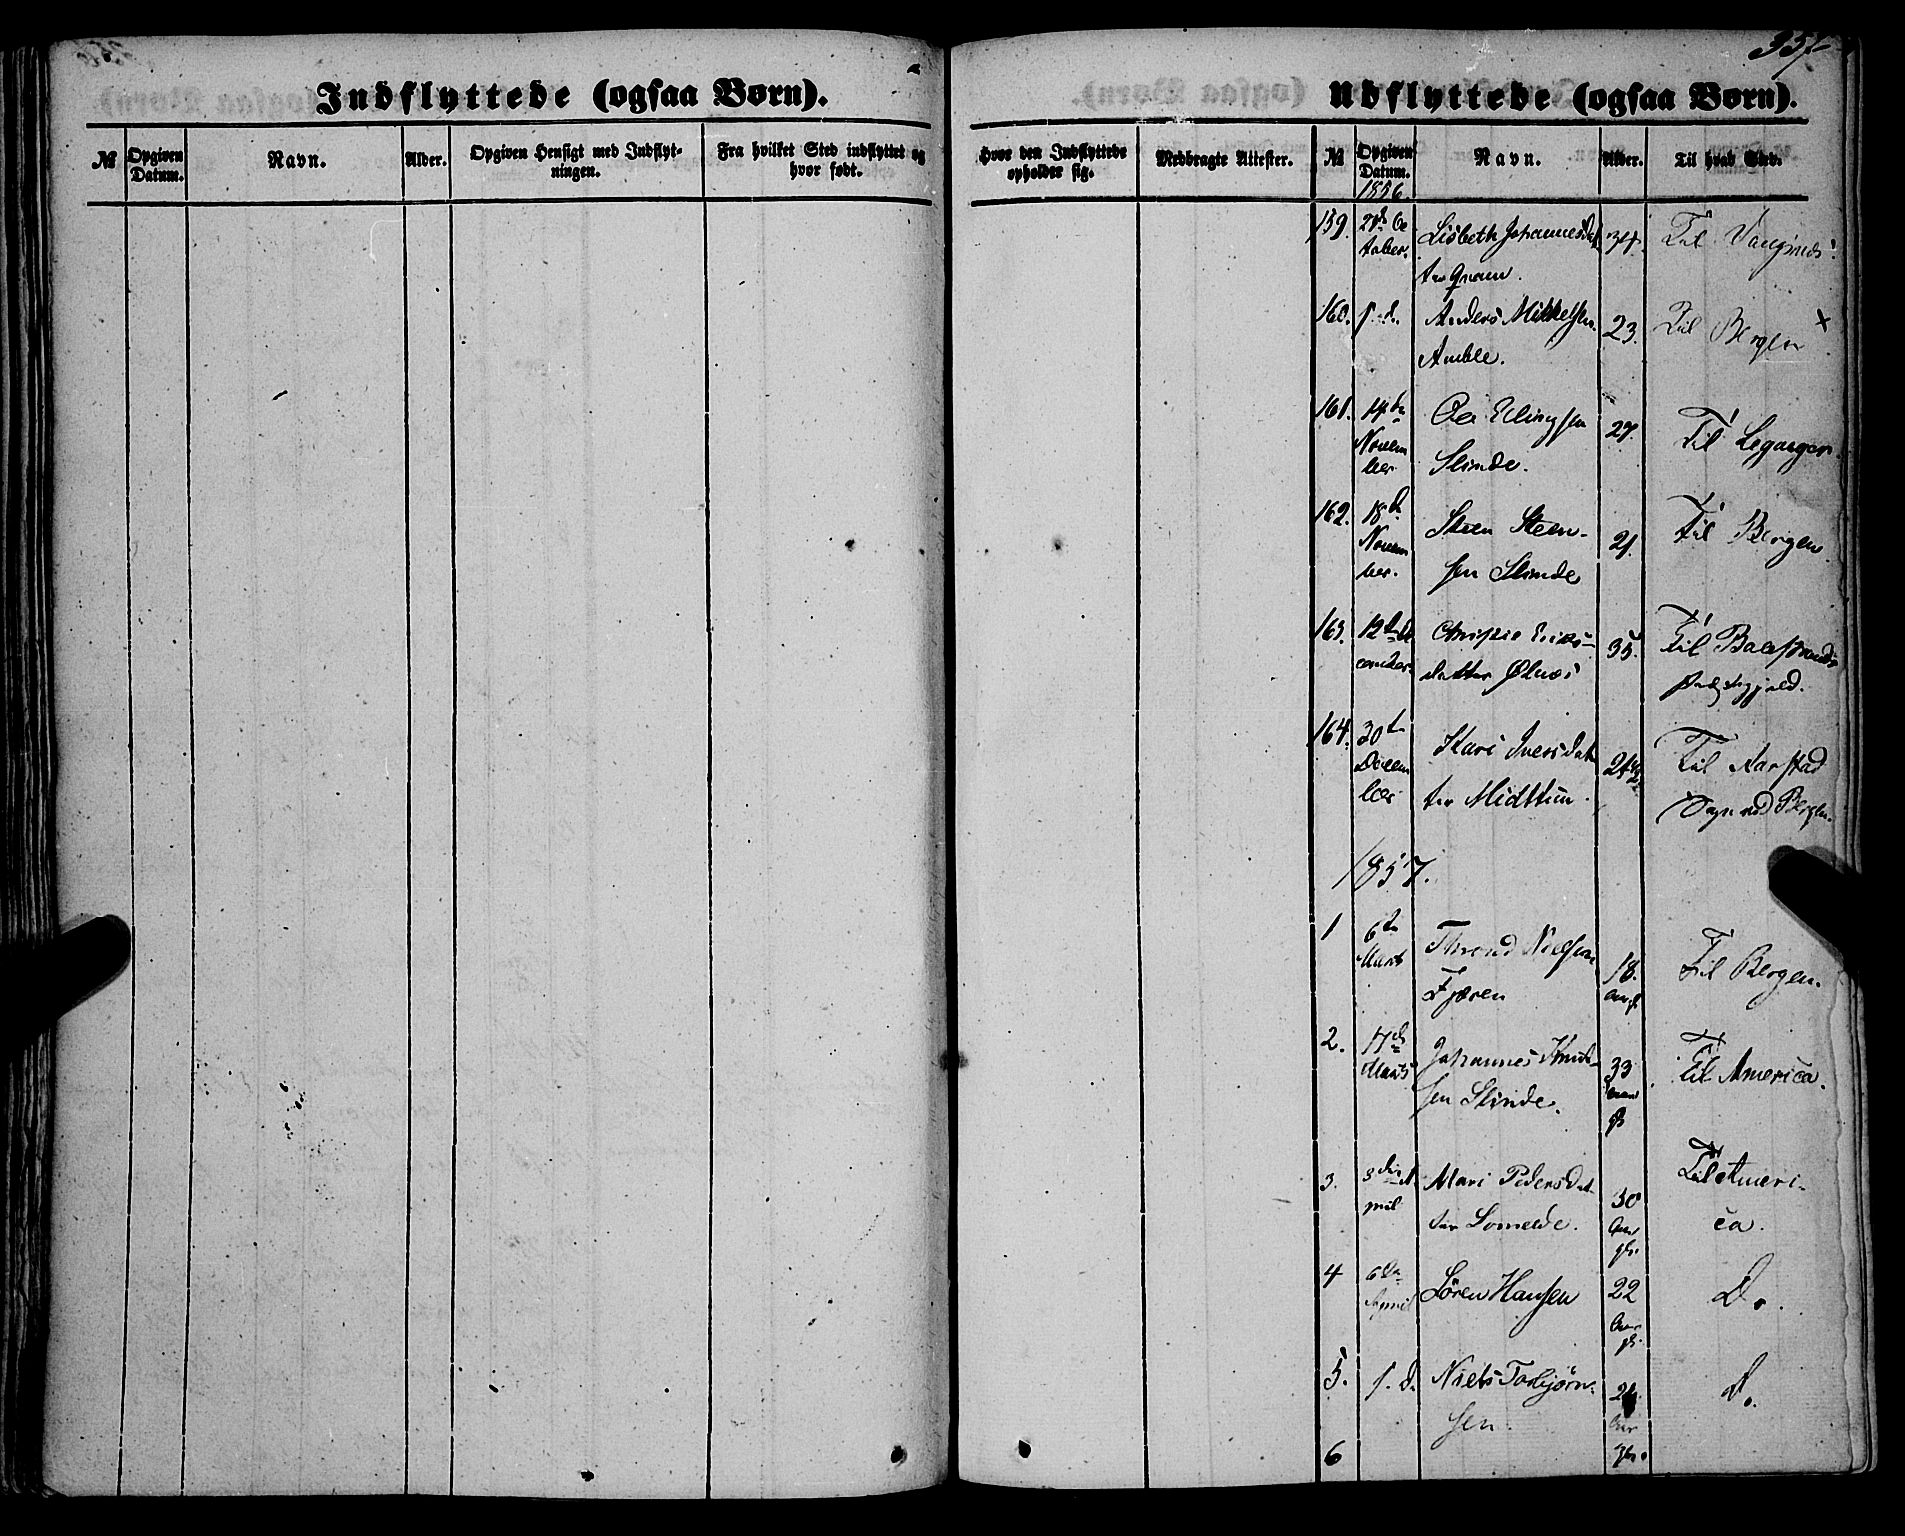 357
Indflyttede (ogsaa Børn).
Udflyttede (ogsaa Børn).
№
Opgiven Datum.
Navn.
Alder.
Opgiven Hensigt med Indflyt-
ningen.
Fra hvilket Sted indflyttet og
hvor født.
Hvor den Indflyttede
opholder sig.
Medbragte Attester.
№
Opgiven Datum.
Navn.
Alder.
Til hvad Sted.
1856.
159. Lisbeth Johannesdat
ter Qvam. Til Vangsnæs
160. s. d. Anders Mikkelsen 23. Til Bergen +
Amble.
161. 14de Novem
ber Ole Ellingsen 27. Til Leganger
Slinde.
162. 18de Novem
ber. Steen Steen-
sen Slinde 21. Til Bergen
163. 12te De
cember Eriks-
datter Ølnæs 35. Til Balestrands
Præstegjeld.
164. 30te Decem
ber Kari Iversdat
ter Midttun. Til Aarstad
Sogn ved Bergen.
1857.
1 6te Marts Thrond Nielsen
Fjæren 18. Til Bergen.
2. 17de Marts Johannes Knud-
sen Slinde. 33 Til America.
3. 3die A
pril Mari Pedersdat
ter Lomelde. 30 Til Ameri-
ca.
4 6te April Søren Hansen 22 Do.
5. s. D. Niels Torbjørn-
sen. Do.
6